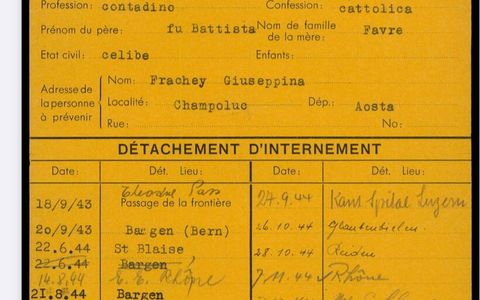 Profession: contadino Confession: cattolica
Prénom du père: fu Battista Nom de famille de la mère: Favre
Etat civil: celibe Enfants:
Adresse de la personne à prévenir
Nom: Frachey Giuseppina
Localité: Champoluc Dép.: Aosta
Rue: No:
DÉTACHEMENT D'INTERNEMENT
Date: Dét. Lieu: Date: Dét. Lieu:
18/9/43 Pass Passage de la frontière 27.9.44 Kant. Spital Luzern
20/9/43 Bargen (Bern) 26.10.44
22.6.44 St Blaise 28.10.44 Reiden
22.6.44 Bargen
14.8.44 Rhône 7.11.44 Rhône
21.8.44 Bargen